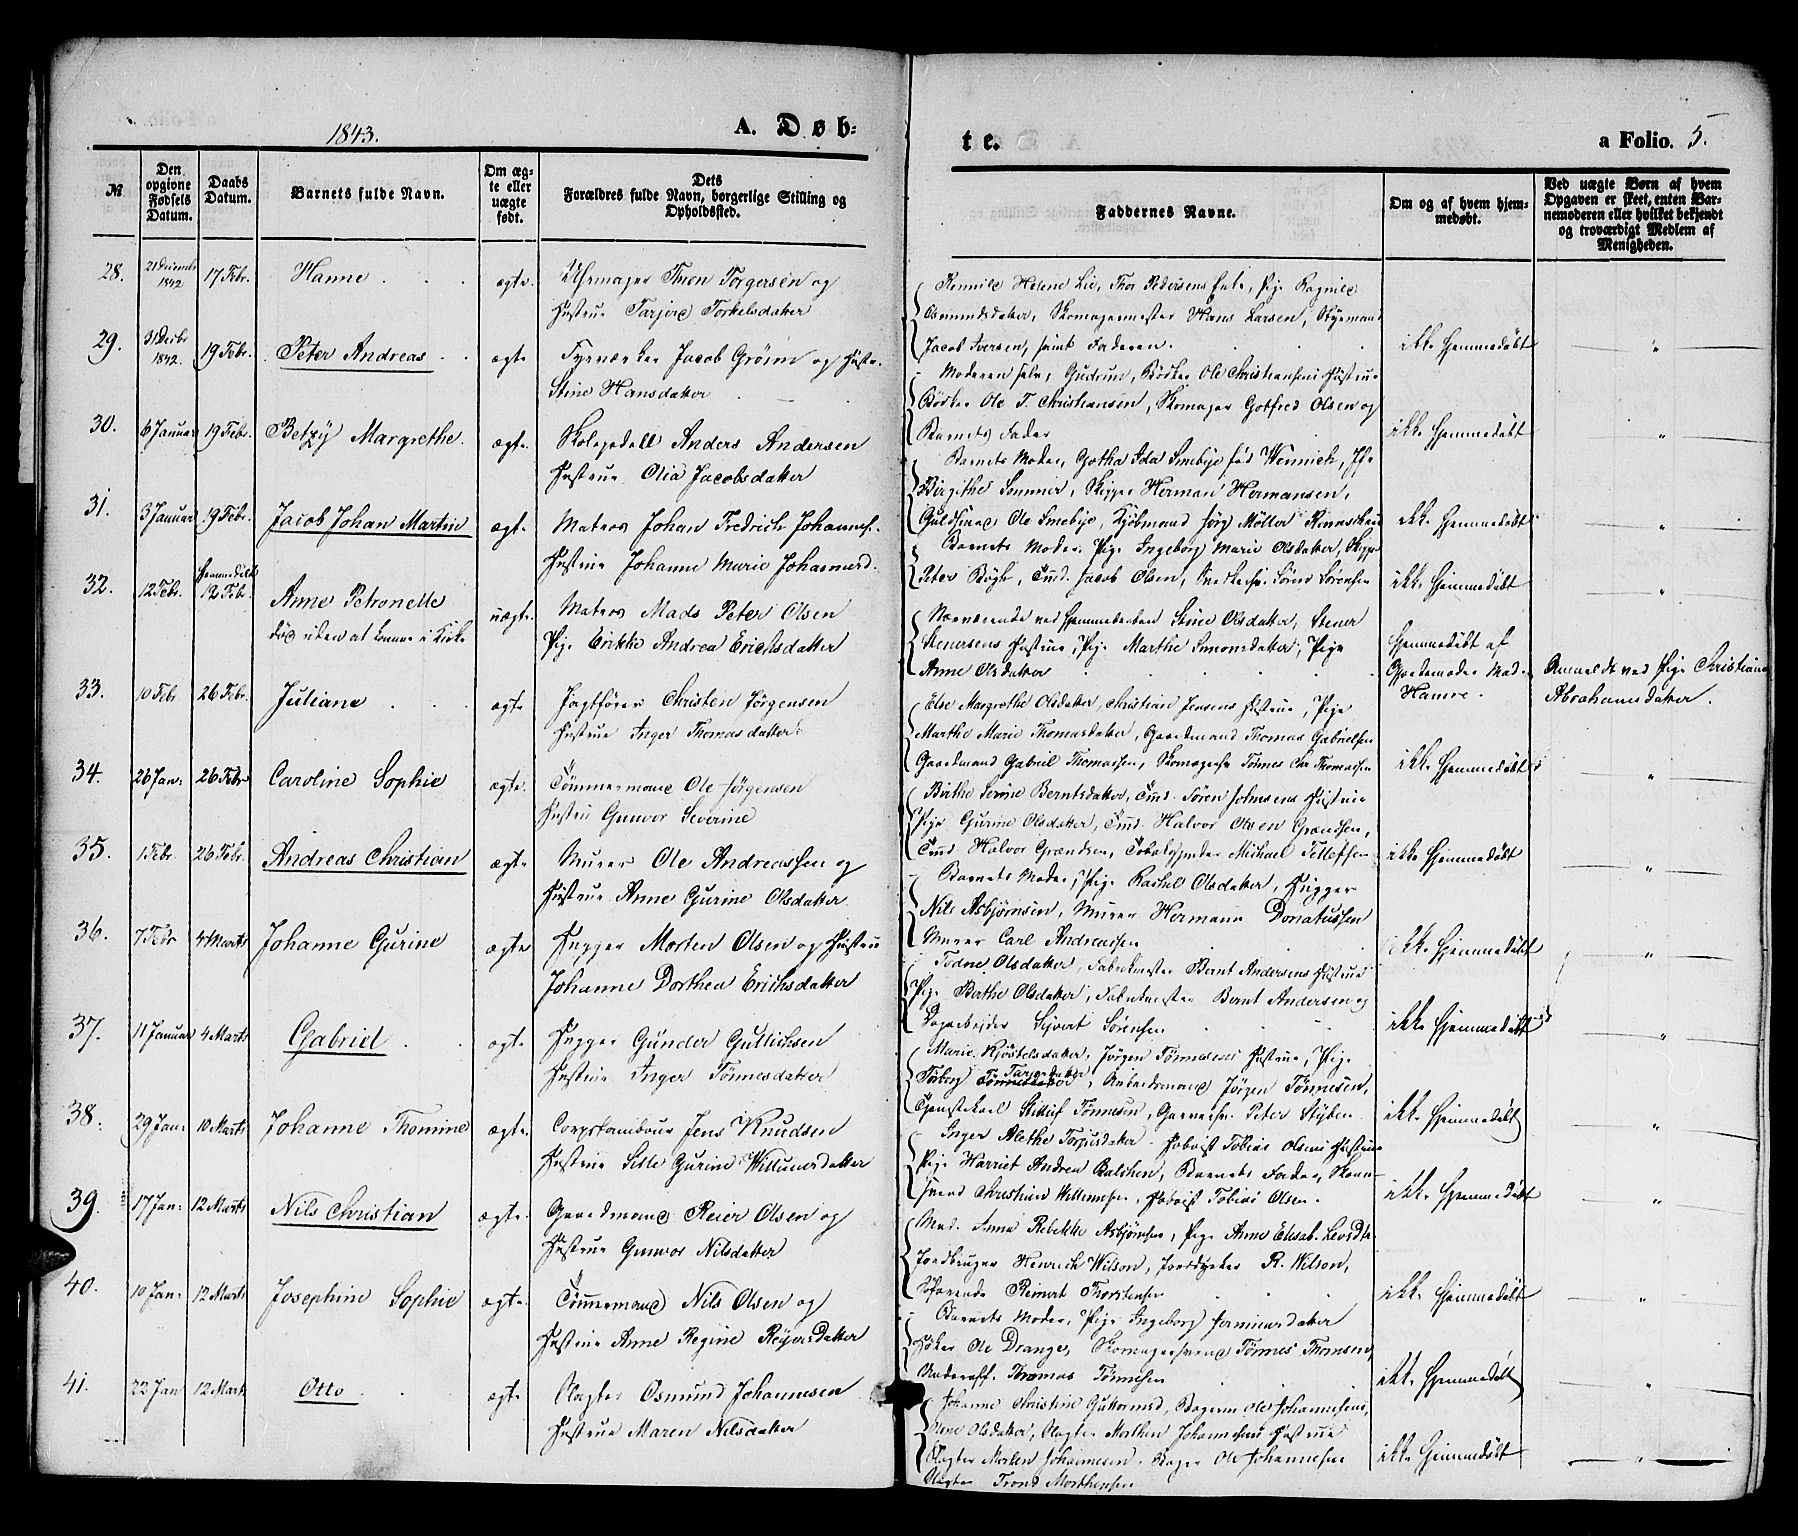 1843.
A. Døb-
te.
a Folio. 5.
№
Den opgivne Fødsels Datum.
Daabs Datum.
Barnets fulde Navn.
Om ægte eller uægte født.
Dets Forældres fulde Navn, borgerlige Stilling og Opholdssted.
Faddernes Navne.
Om og af hvem hjemmedøbt.
Ved uægte Børn af hvem Opgaven er skeet, enten Barnemoderen eller hvilket bekjendt og troværdigt Medlem af Menigheden.
28. 21 Decembr 1842 17 Febr. Hanne ægte. Uhrmager Thron Torgersen og
Hustrue Torkelsdatter
Helene Lie, Thor Pedersens Pige
Osmundsdatter, Skomagermester Hans Larsen, Styrmand
Jacob Iversen, samt Faderen.
29. 31 Decbr 1842. 19 Febr. Peter Andreas ægte Jacob Grøim og Hustr.
Stine Hansdatter
ikke Hjemmedøbt "
Moderen selv, Gudrun, Bødker Ole Christiansens Hustrue
Bødker Ole T. Christiansen, Skomager Gotfred Olsen og
Barnets Fader
30. 6 Januar 19 Febr. Betzy Margrethe. ægte. Anders Andersen
Hustrue Olia Jacobsdatter
ikke Hjemmedøbt "
Barnets Moder, Gotha Ida Smebye fød Wennich,
Birgithe Sommer, Skipper Herman Hermansen,
Guldsmed Ole Smebye, Kjøbmand Jørg Möller
31. 3 Januar 19 Febr. Jacob Johan Martin ægte. Matros Johan Fredrich Johannes.
Hustrue Johanne Marie
ikke Hjemmedøbt "
Barnets Moder, Pige Ingeborg Marie Olsdatter,
Peter Jacob Olsen, Sørensen
ikke Hjemmedøbt "
32. 12 Febr. Hjemmedøbt 12 Febr. Anne Petronelle
død uden at komme i Kirke
uægte. Matros Mads Peter Olsen
Pige Erikke Andrea Erichsdatter
Nærværende ved Hjemmedaaben Stine Olsdatter, Stener
Stenersens Hustrue, Pige Marthe Simonsdatter, Pige
Anne Olsdatter
Hjemmedøbt af
Gjordemoder Mad.
Hamre.
Anmeldt ved Pige Christiane
Abrahamsdatter.
33. 10 Febr 26 Febr. Juliane ægte Jagtfører Christen Jörgensen
Hustrue Inger Thomasdatter
Else Margrethe Olsdatter, Christian Jensens Hustrue, Pige
Marthe Marie Thomasdatter, Gaardmand Thomas Gabrielsen
Gaardmand Gabriel Thomassen, Tönnes Chr Thomassen
ikke Hjemmedøbt "
34. 26 Jan: 26 Febr Caroline Sophie ægte. Tömmermand Ole Jörgensen
Hustru Gunvor Severine
Birthe Serine Berntsdatter, Tmd. Sören Johnsens Hustrue
Pige Gurine Olsdatter, Tmd. Halvor Olsen Grændsen,
Tmd Halvor Grændsen, Michael Tellefsen
35. 1 Febr 26 Febr. Andreas Christian ægte. Murer Ole Andreassen og
Hustrue Anne Gurine Olsdatter
ikke Hjemmedøbt "
Barnets Moder, Pige Rachel Olsdatter, Hugger
Nils Asbjørnsen, Murer Hermann Donatussen
Murer Carl Andreassen
36. 7 Febr 4 Marts Johanne Gurine ægte Hugger Morten Olsen og Hustrue
Johanne Dorthea Erichsdatter
ikke Hjemmedøbt "
Todne Olsdatter, Fabrikmester Bernt Andersens Hustrue
Pige Berthe Olsdatter, Fabrikmester Bernt Andersen og
Dagarbejder Sjvert Sørensen
37. 11 Januar 4 Marts Gabriel ægte Hugger Gunder Gullichsen
Hustrue Inger Tönnesdatter
ikke Hjemmedøbt "
Marie Kjöstelsdatter, Jörgen Tönnesens Hustrue, Pige
Torborg Tarjesdatter, Arbeidsmand Jörgen Tönnesen,
Tjenestekarl Tönnesen, Peter Styben
38. 29 Jan: 10 Marts Johanne Thomine ægte. Corpstambour Jens Knudsen
Hustrue Sille Gurine Willumsdatter
ikke Hjemmedøbt "
Inger Alethe Torjusdatter Tobias Olsens Hustrue
Pige Harriet Andrea Balchen, Barnets Fader,
Christian Willumsen, Tobias Olsen.
39. 17 Jan: 12 Marts Nils Christian ægte. Gaardmand Reier Olsen og
Hustrue Gunvor Nilsdatter
ikke Hjemmedøbt "
Mad. Anna Rebekka Asbjørnsen, Pige Anne Elisab.
Jordbruger Heinrich Wilson, Jorddyrker R. Wilson,
Reinert Thorstensen
40. 10 Jan: 12 Marts Josephine Sophie ægte. Tömmermand Nils Olsen og
Hustrue Anne Regine Reyersdatter
ikke Hjemmedøbt "
Barnets Moder, Pige Ingeborg
Ole Drange, Skomagersvend Tönnes Thomsen,
Underoff. Thomas Tönnesen
41. 22 Jan 12 Mart Otto ægte. Slagter Osmund Johannesen
Hustrue Maren Nilsdatter
ikke Hjemmedøbt "
Johanne Christine Guttormsd, Bager Ole Johannesens,
Olsdatter, Slagter Morthen Johannesens Hustrue
Slagter Morten Johannesen, Bager Ole Johannesen
Slagter Trond Morthensen
ikke Hjemmedøbt "